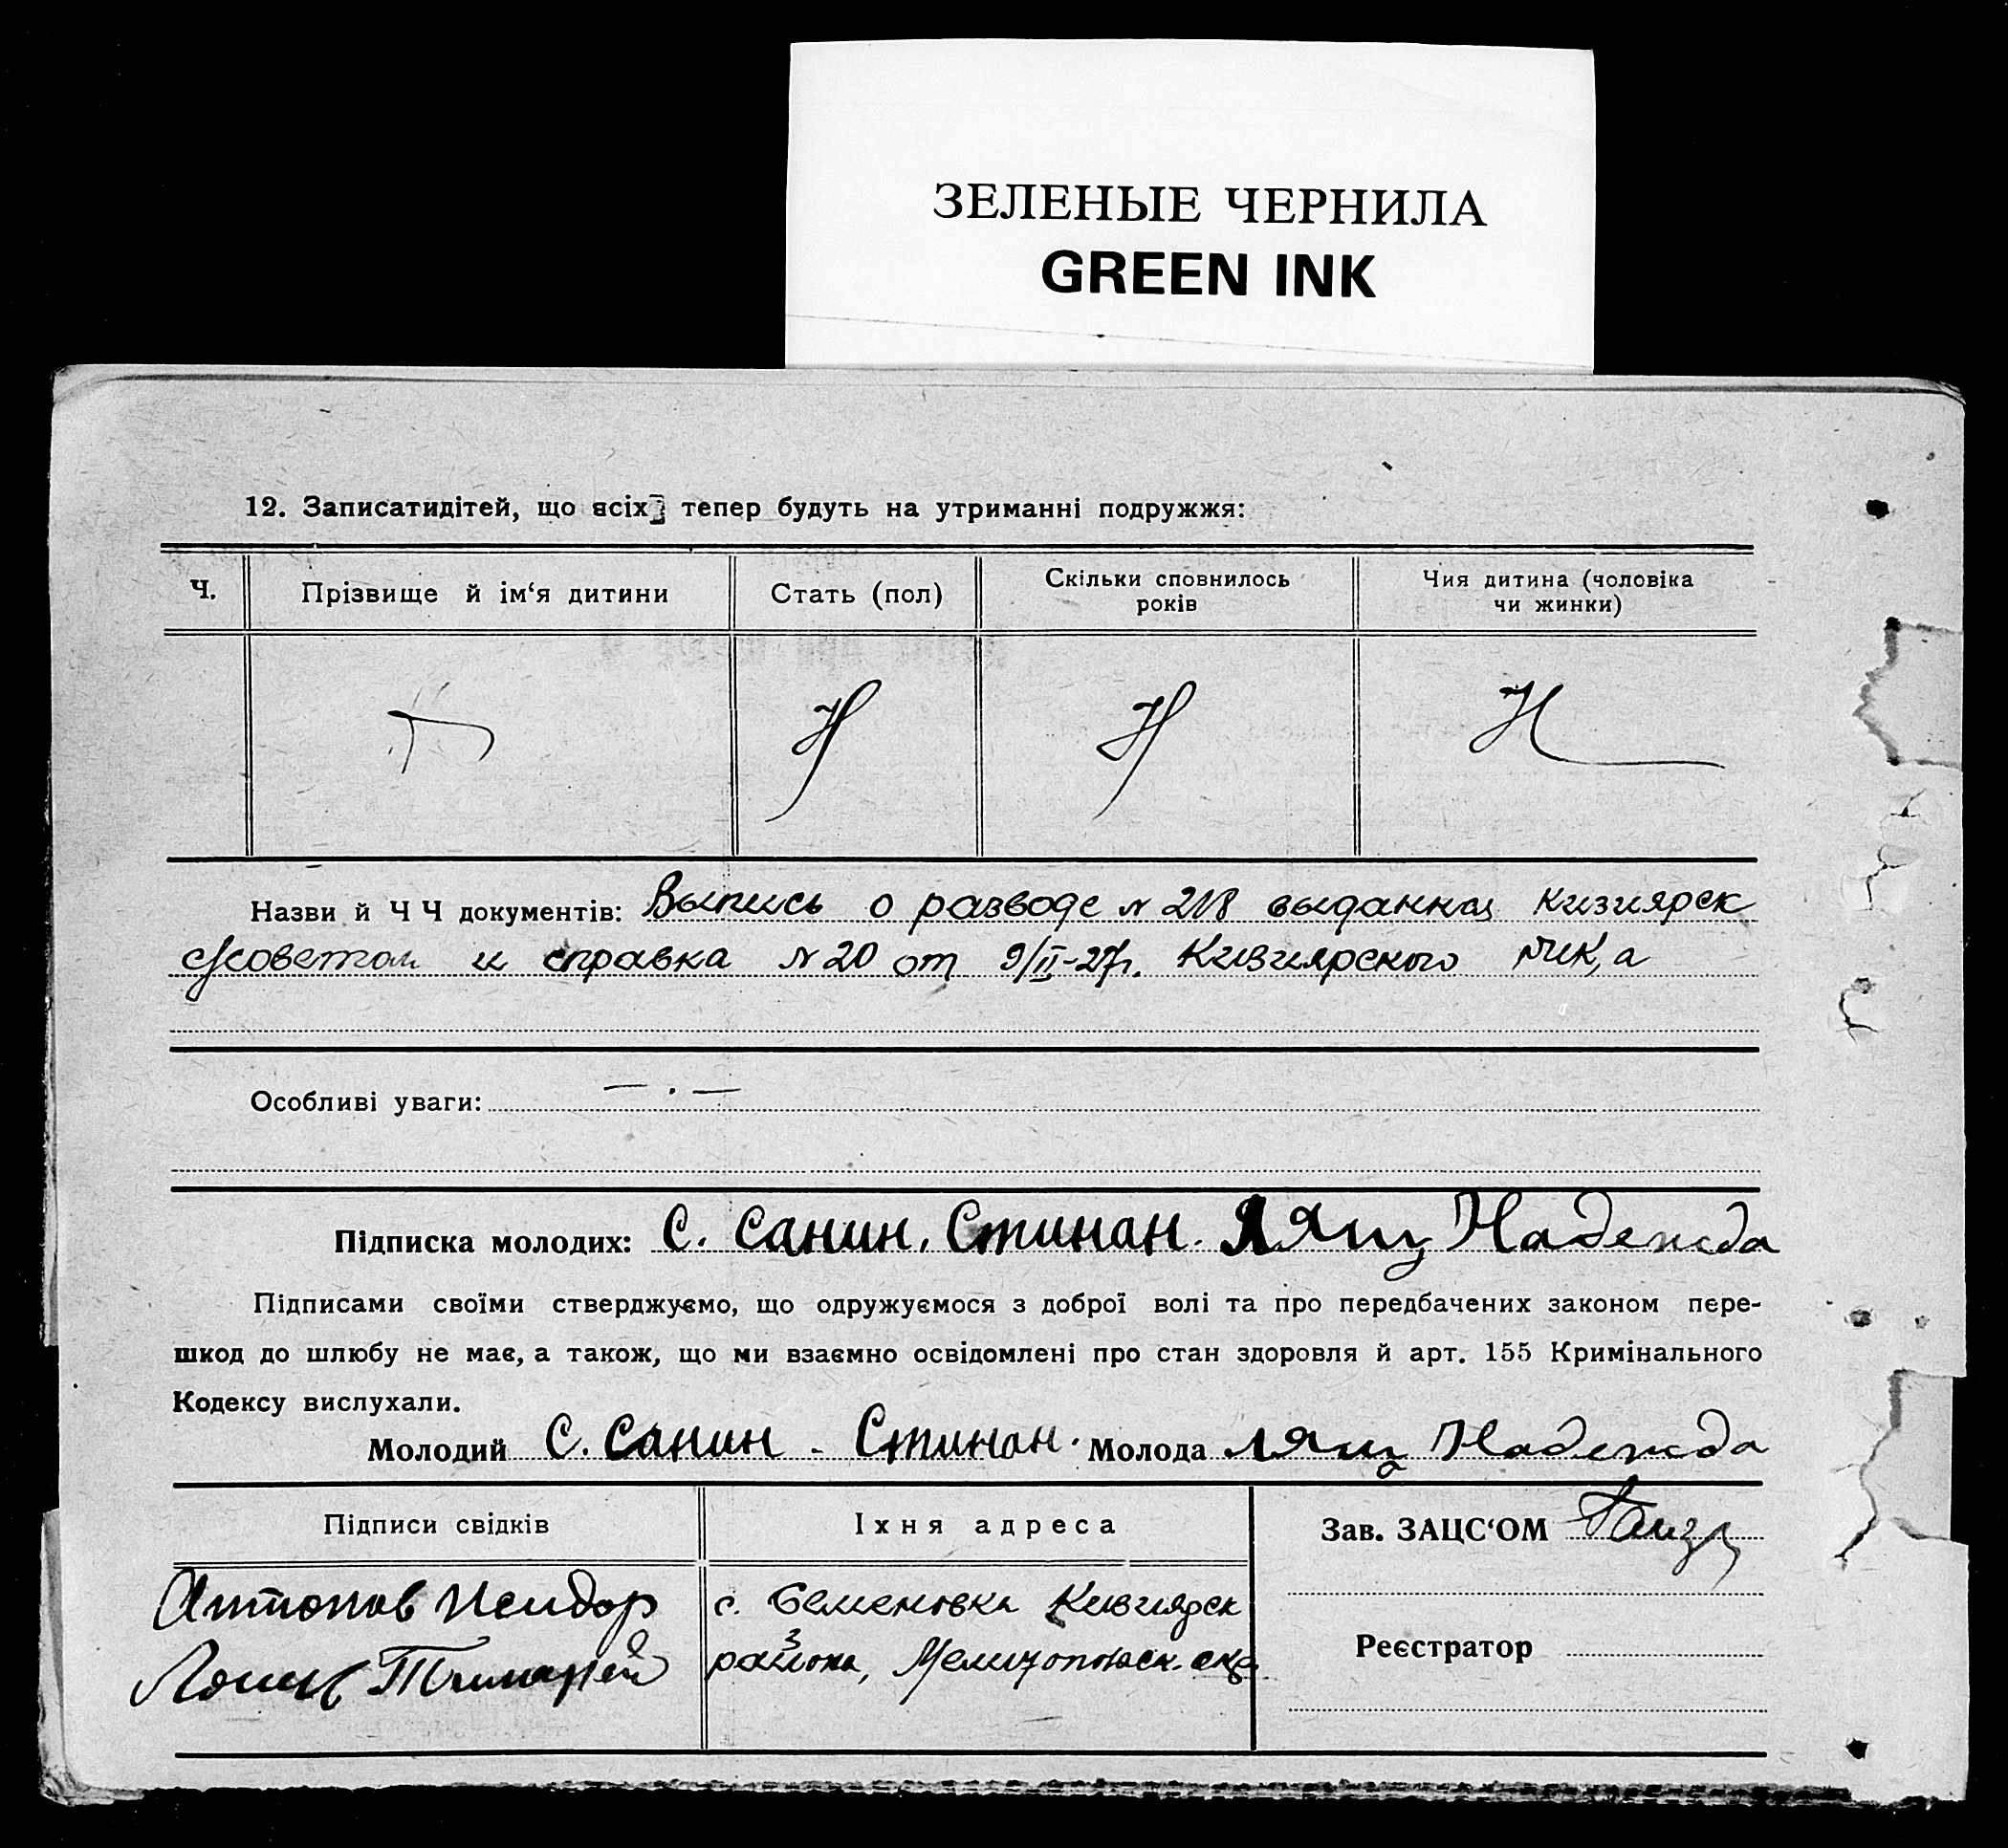 ЗЕЛЕНЫЕ ЧЕРНИЛА
GREEN INK
12. Записатидітей, що всіх тепер будуть на утриманні подружжя:
Ч. Прізвище й ім‘я дитини Стать (пол) Скільки сповнилось років Чия дитина (чоловіка чи жинки)
Н Н Н
Назви й Ч Ч документів: Выпись о разводе № 218 выданная Кизиярск
с/советом и справка № 20 от 9/II-27г. Кизиярского РИК,а
Особливі уваги: — . —
Підписка молодих: С. Санин, Стинан. Лящ Надежда
Підписами своїми стверджуємо, що одружуємося з доброї волі та про передбачених законом пере-
шкод до шлюбу не має, а також, що ми взаємно освідомлені про стан здоровля й арт. 155 Кримінального
Кодексу вислухали.
Молодий С. Санин - Стинан. Молода Лящ Надежда
Підписи свідків Їхня адреса Зав. ЗАЦС‘ОМ
Антонов Исидор с. Семеновка Кизиярск
Тимофей района, Мелитопольск. окр.
Реєстратор